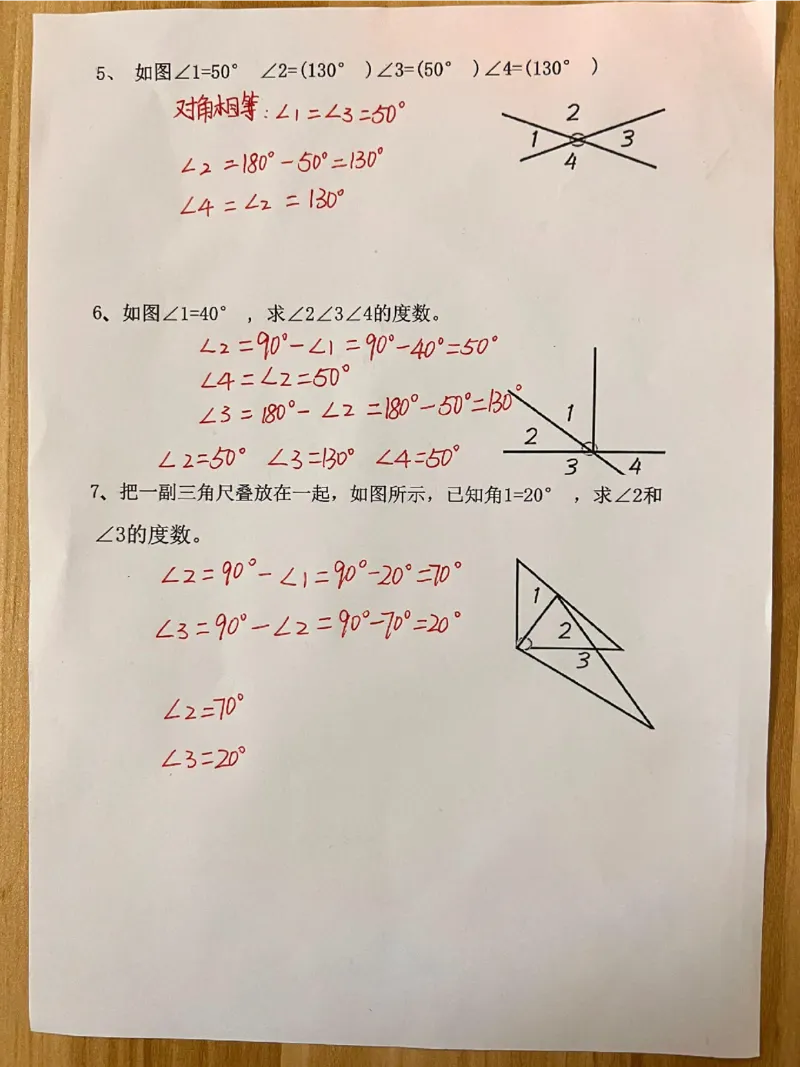 5、 如图∠1=50° ∠2=(130° )∠3=(50° )∠4=(130° )
对角相等:∠1=∠3=50°
∠2=180°-50°=130°
∠4=∠2=130°
2
1
3
4
6、如图∠1=40° ,求∠2∠3∠4的度数。
∠2=90°-∠1=90°-40°=50°
∠4=∠2=50°
∠3=180°-∠2=180°-50°=130°
∠2=50° ∠3=130° ∠4=50°
1
2
3
4
7、把一副三角尺叠放在一起,如图所示,已知角1=20° ,求∠2和
∠3的度数。
∠2=90°-∠1=90°-20°=70°
∠3=90°-∠2=90°-70°=20°
∠2=70°
∠3=20°
1
2
3